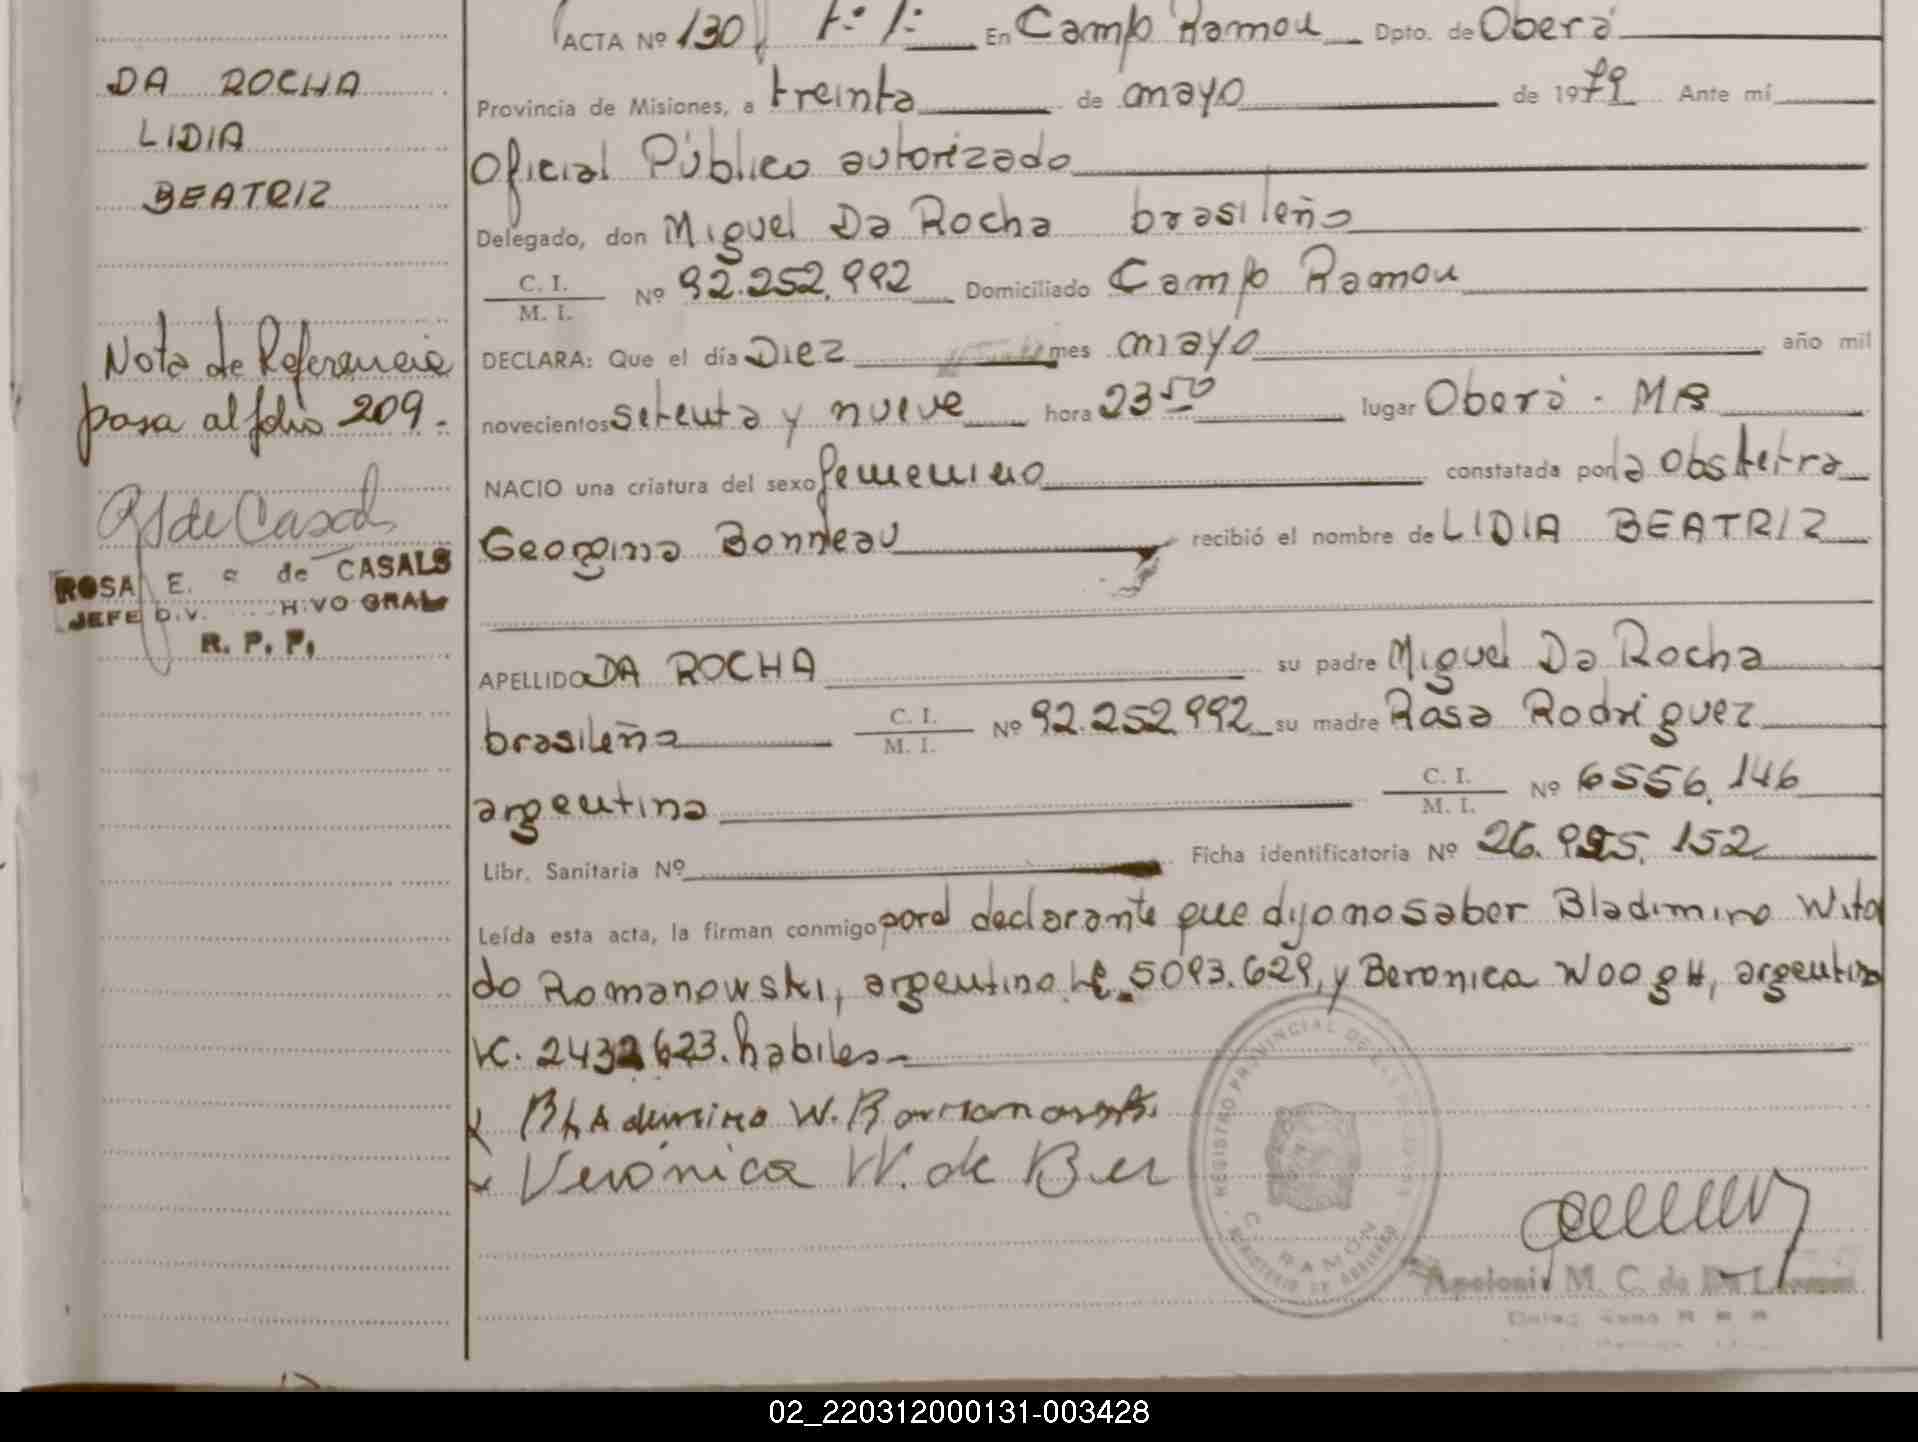 ACTA Nº 130 En Campo Ramon Dpto. de Obera
DA ROCHA
LIDIA
BEATRIZ
Provincia de Misiones, a treinta de mayo de 1979 Ante mí
Oficial Público autorizado
Delegado, don Miguel Da Rocha brasileño
C. I.
M. I. Nº 92.252.992 Domiciliado Campo Ramon
DECLARA: Que el día Diez mes mayo año mil
novecientos setenta y nueve hora 23 50 lugar Oberá - Mns
NACIO una criatura del sexo femenino constatada por la obstetra
Georgina Bonneau recibió el nombre de LIDIA BEATRIZ
Nota de Referencia
pasa al folio 209.-
R de Casals
ROSA E. de CASALS
JEFE DIV. HIVO GRAL
R. P. P.
APELLIDO DA ROCHA su padre Miguel Da Rocha
brasileño C. I.
M. I. Nº 92.252.992 su madre Rosa Rodriguez
argentina C. I.
M. I. Nº 6556.146
Libr. Sanitaria Nº Ficha identificatoria Nº 26.995.152
Leída esta acta, la firman conmigo por el declarante que dijo no saber Bladimiro Wito
do Romanowski, argentino LE. 5093.629, y Beronica Woogh, argentina
LC. 2432623. habiles.-
Bladimiro W. Romanowski
Verónica W. de Ber
REGISTRO PROVINCIAL DE LAS PERSONAS
C. RAMON
MINISTERIO DE GOBIERNO
Apolonia M. C. de Da